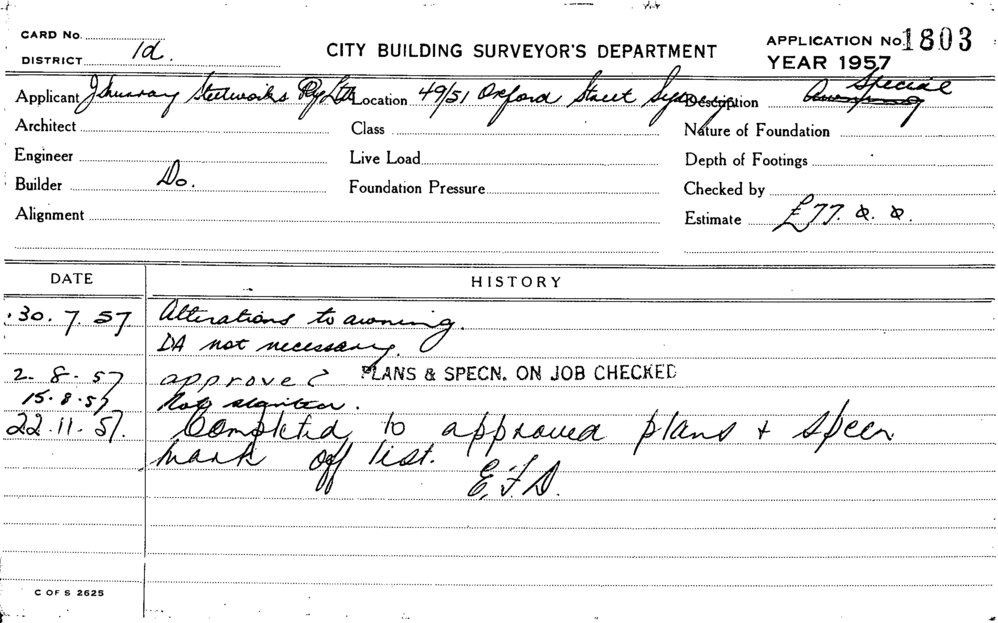 CARD No.
DISTRICT 1d.
CITY BUILDING SURVEYOR'S DEPARTMENT
APPLICATION No. 1803
YEAR 1957
Applicant J Murray Steelworks Pty Ltd Location 49/51 Oxford Street Sydney Description Special
Architect Class Nature of Foundation
Engineer Live Load Depth of Footings
Builder Do. Foundation Pressure Checked by
Alignment Estimate £77. 0. 0.
DATE HISTORY
30. 7. 57 Alterations to awning.
DA not necessary.
2. 8. 57 approved PLANS & SPECN. ON JOB CHECKED
15. 8. 57 Not
22. 11. 57. Completed to approved plans + specn
mark off list.
E.F.D.
C OF S 2625